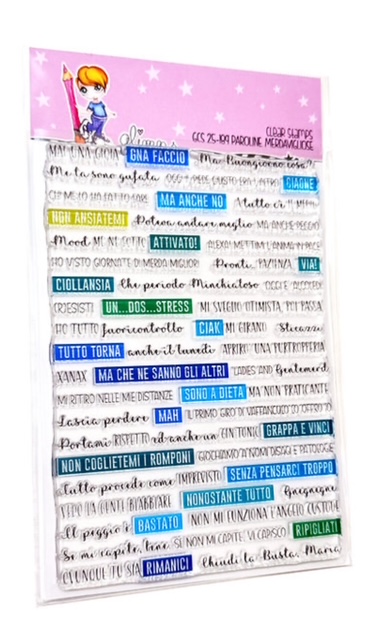 Glimps
CLEAR STAMPS
GCS 25-199 PAROLINE MERDAVIGLIOSE
MAI UNA GIOIA GNA FACCIO Ma Buongiorno cosa?
Me la sono gufata OGGI CIAONE
CHI ME LO HA FATTO FARE MA ANCHE NO
NON ANSIATEMI Poteva andare meglio MA ANCHE PEGGIO
Mood ATTIVATO! ALEXA! METTIMI L'ANIMA IN PACE
HO VISTO GIORNATE DI MERDA MIGLIORI Pronti, PAZIENZA VIA!
CIOLLANSIA Che periodo Minchialoso
(R)ESISTI UN...DOS...STRESS MI SVEGLIO OTTIMISTA, POI PASSA
HO TUTTO fuoricontrollo CIAK MI GIRANO Sticazzi
TUTTO TORNA anche il lunedì APRIRÒ UNA PURTROPPERIA
XANAX MA CHE NE SANNO GLI ALTRI LADIES AND Gentemerd
MI RITIRO NELLE MIE DISTANZE SONO A DIETA MA NON PRATICANTE
Lascia perdere MAH IL PRIMO GIRO DI VAFFANCULO LO OFFRO IO
Portami RISPETTO ed anche un GIN TONIC GRAPPA E VINCI
NON COGLIETEMI I ROMPONI GIOCHIAMO A NOMI DISAGI E PATOLOGIE
Tutto procede come IMPREVISTO SENZA PENSARCI TROPPO
NONOSTANTE TUTTO Gnegnegne
Il peggio è BASTATO NON MI FUNZIONA L'ANGELO CUSTODE
Se mi capite, bene SE NON MI CAPITE, VI CAPISCO RIPIGLIATI
CIUNQUE TU SIA RIMANICI Chiudi la Busta, Maria